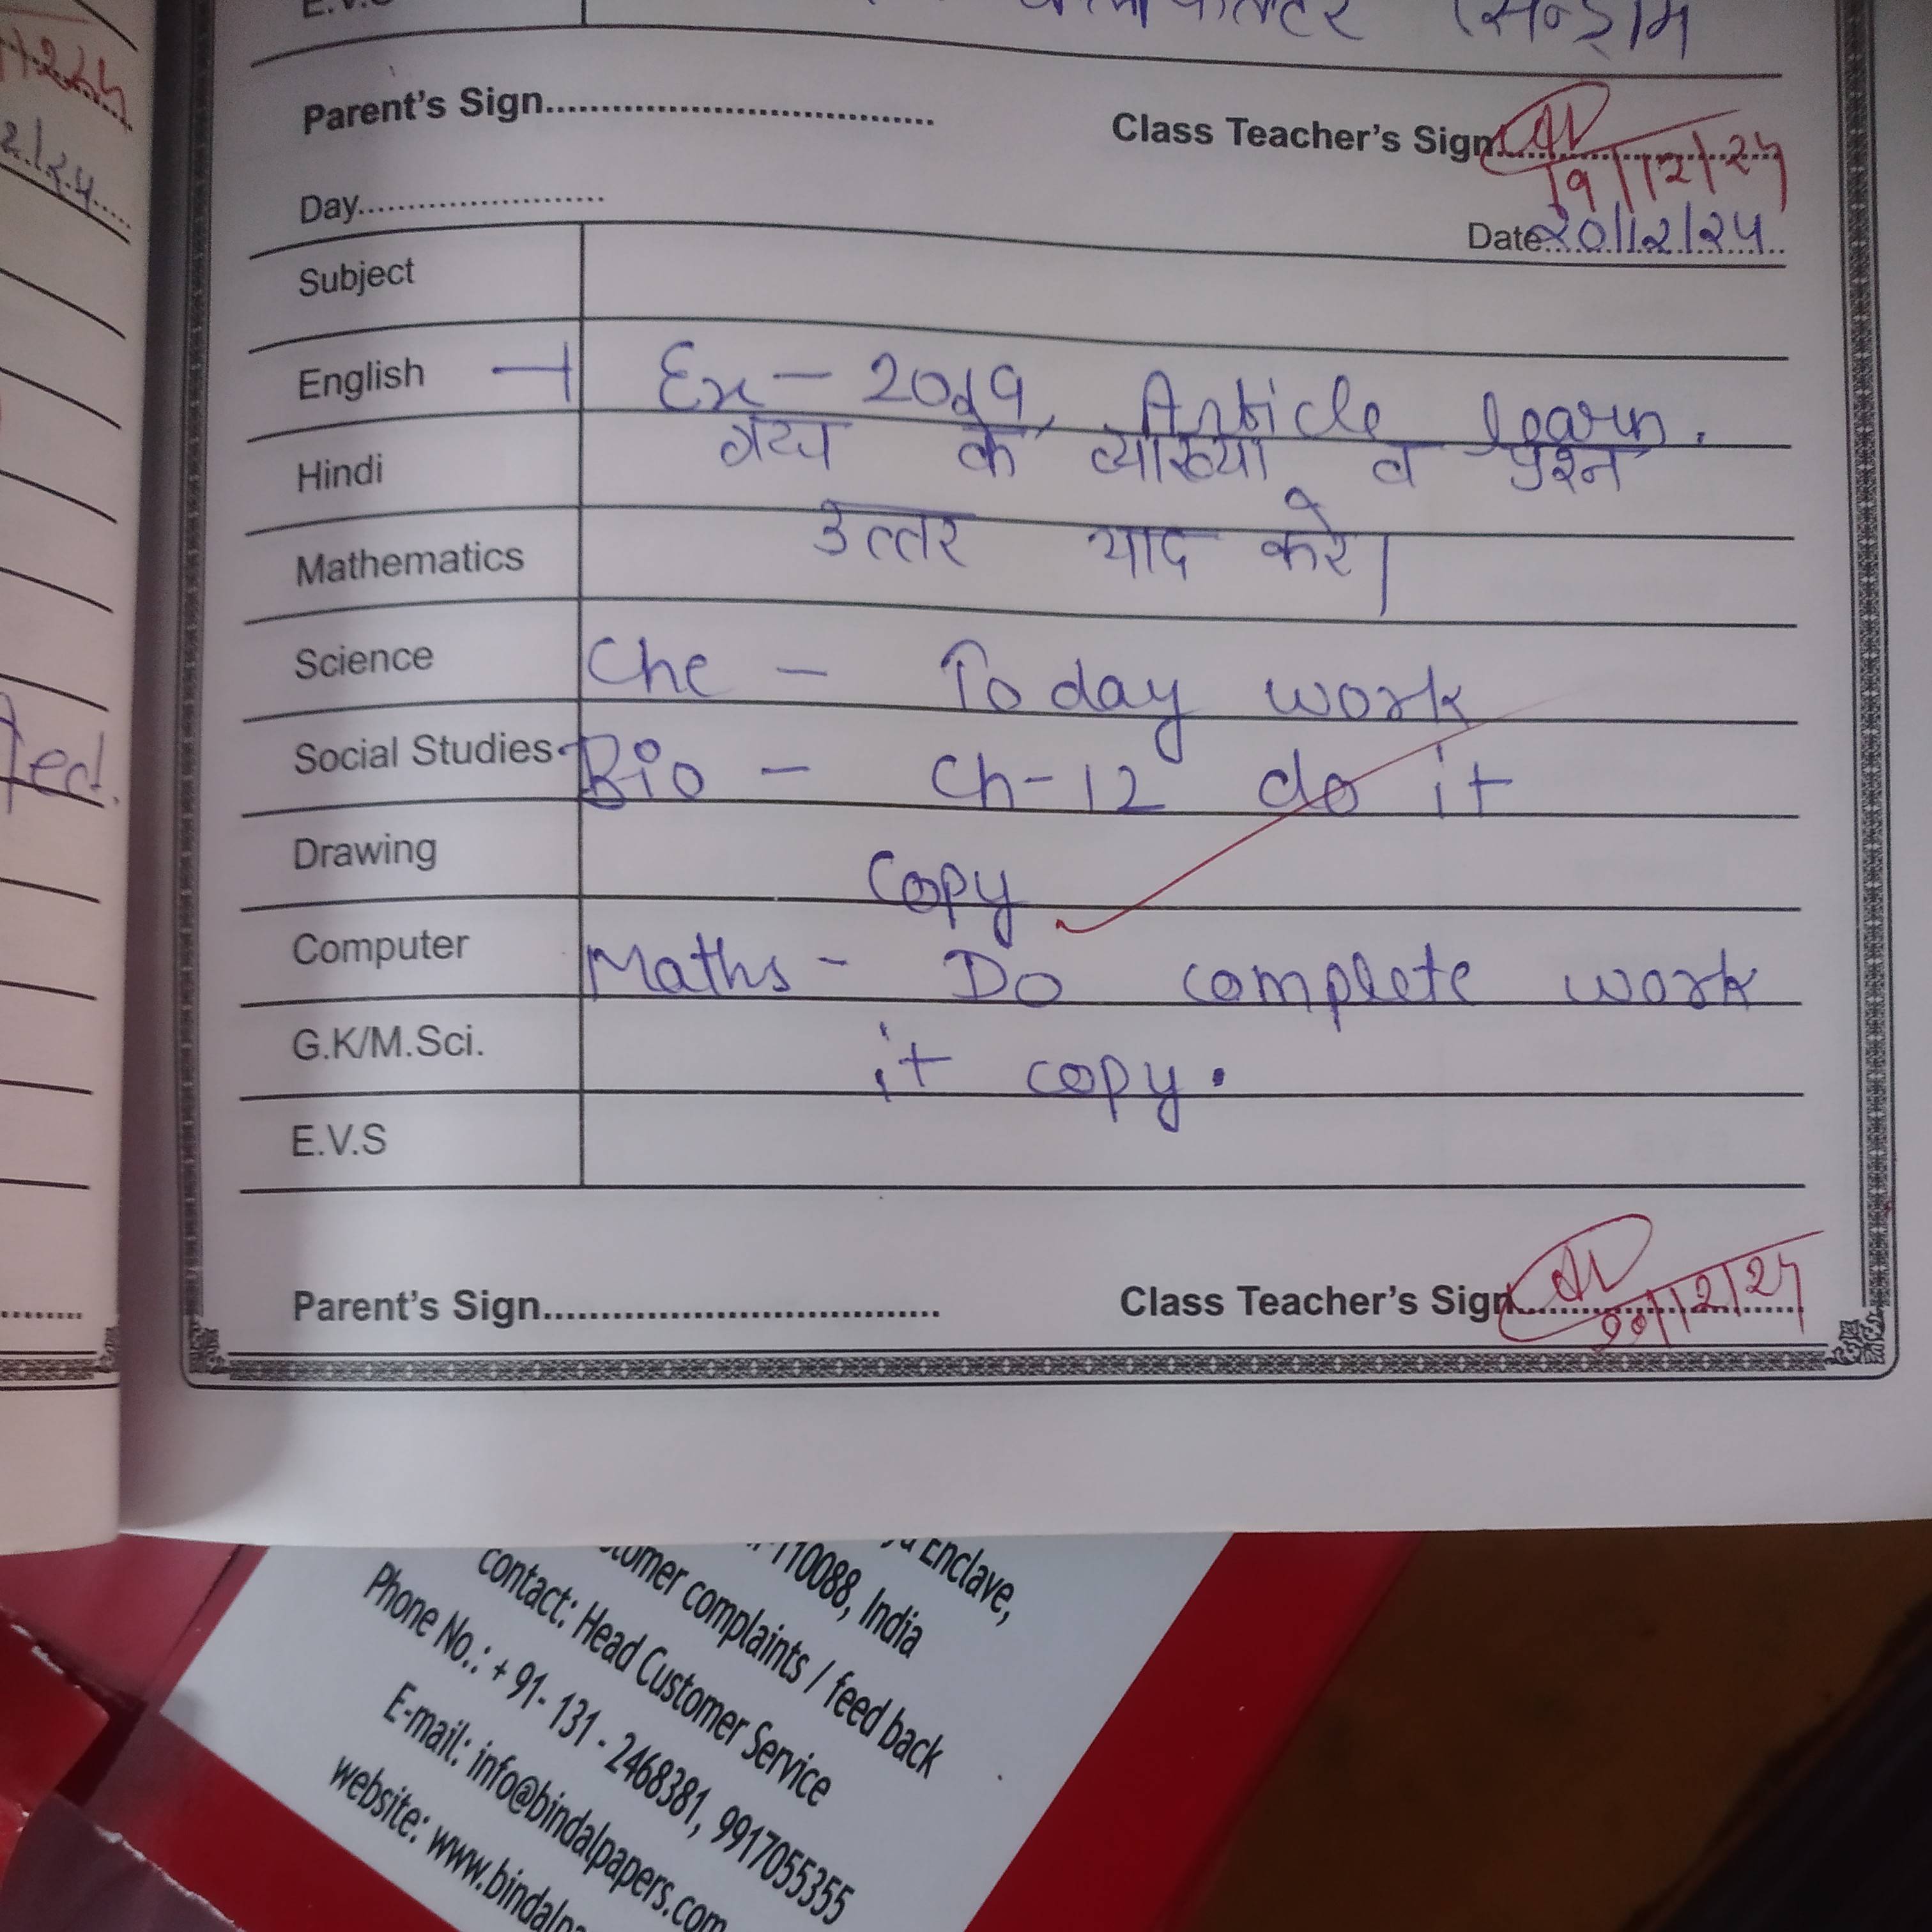 E.V.S
Parent's Sign
Class Teacher's Sign
19/12/24
Day
Date 20/12/24
Subject
English Ex - 20,19, Article learn.
Hindi गद्य के व्याख्या व प्रश्न
Mathematics उत्तर याद करे।
Science Che - Today work
Social Studies Bio - Ch-12 do it
Drawing Copy
Computer Maths - Do complete work
G.K/M.Sci. it copy.
E.V.S
Parent's Sign
Class Teacher's Sign
20/12/24
Enclave,
110088, India
complaints / feed back
contact: Head Customer Service
Phone No.: + 91- 131 - 2468381, 9917055355
E-mail: info@bindalpapers.com
website: